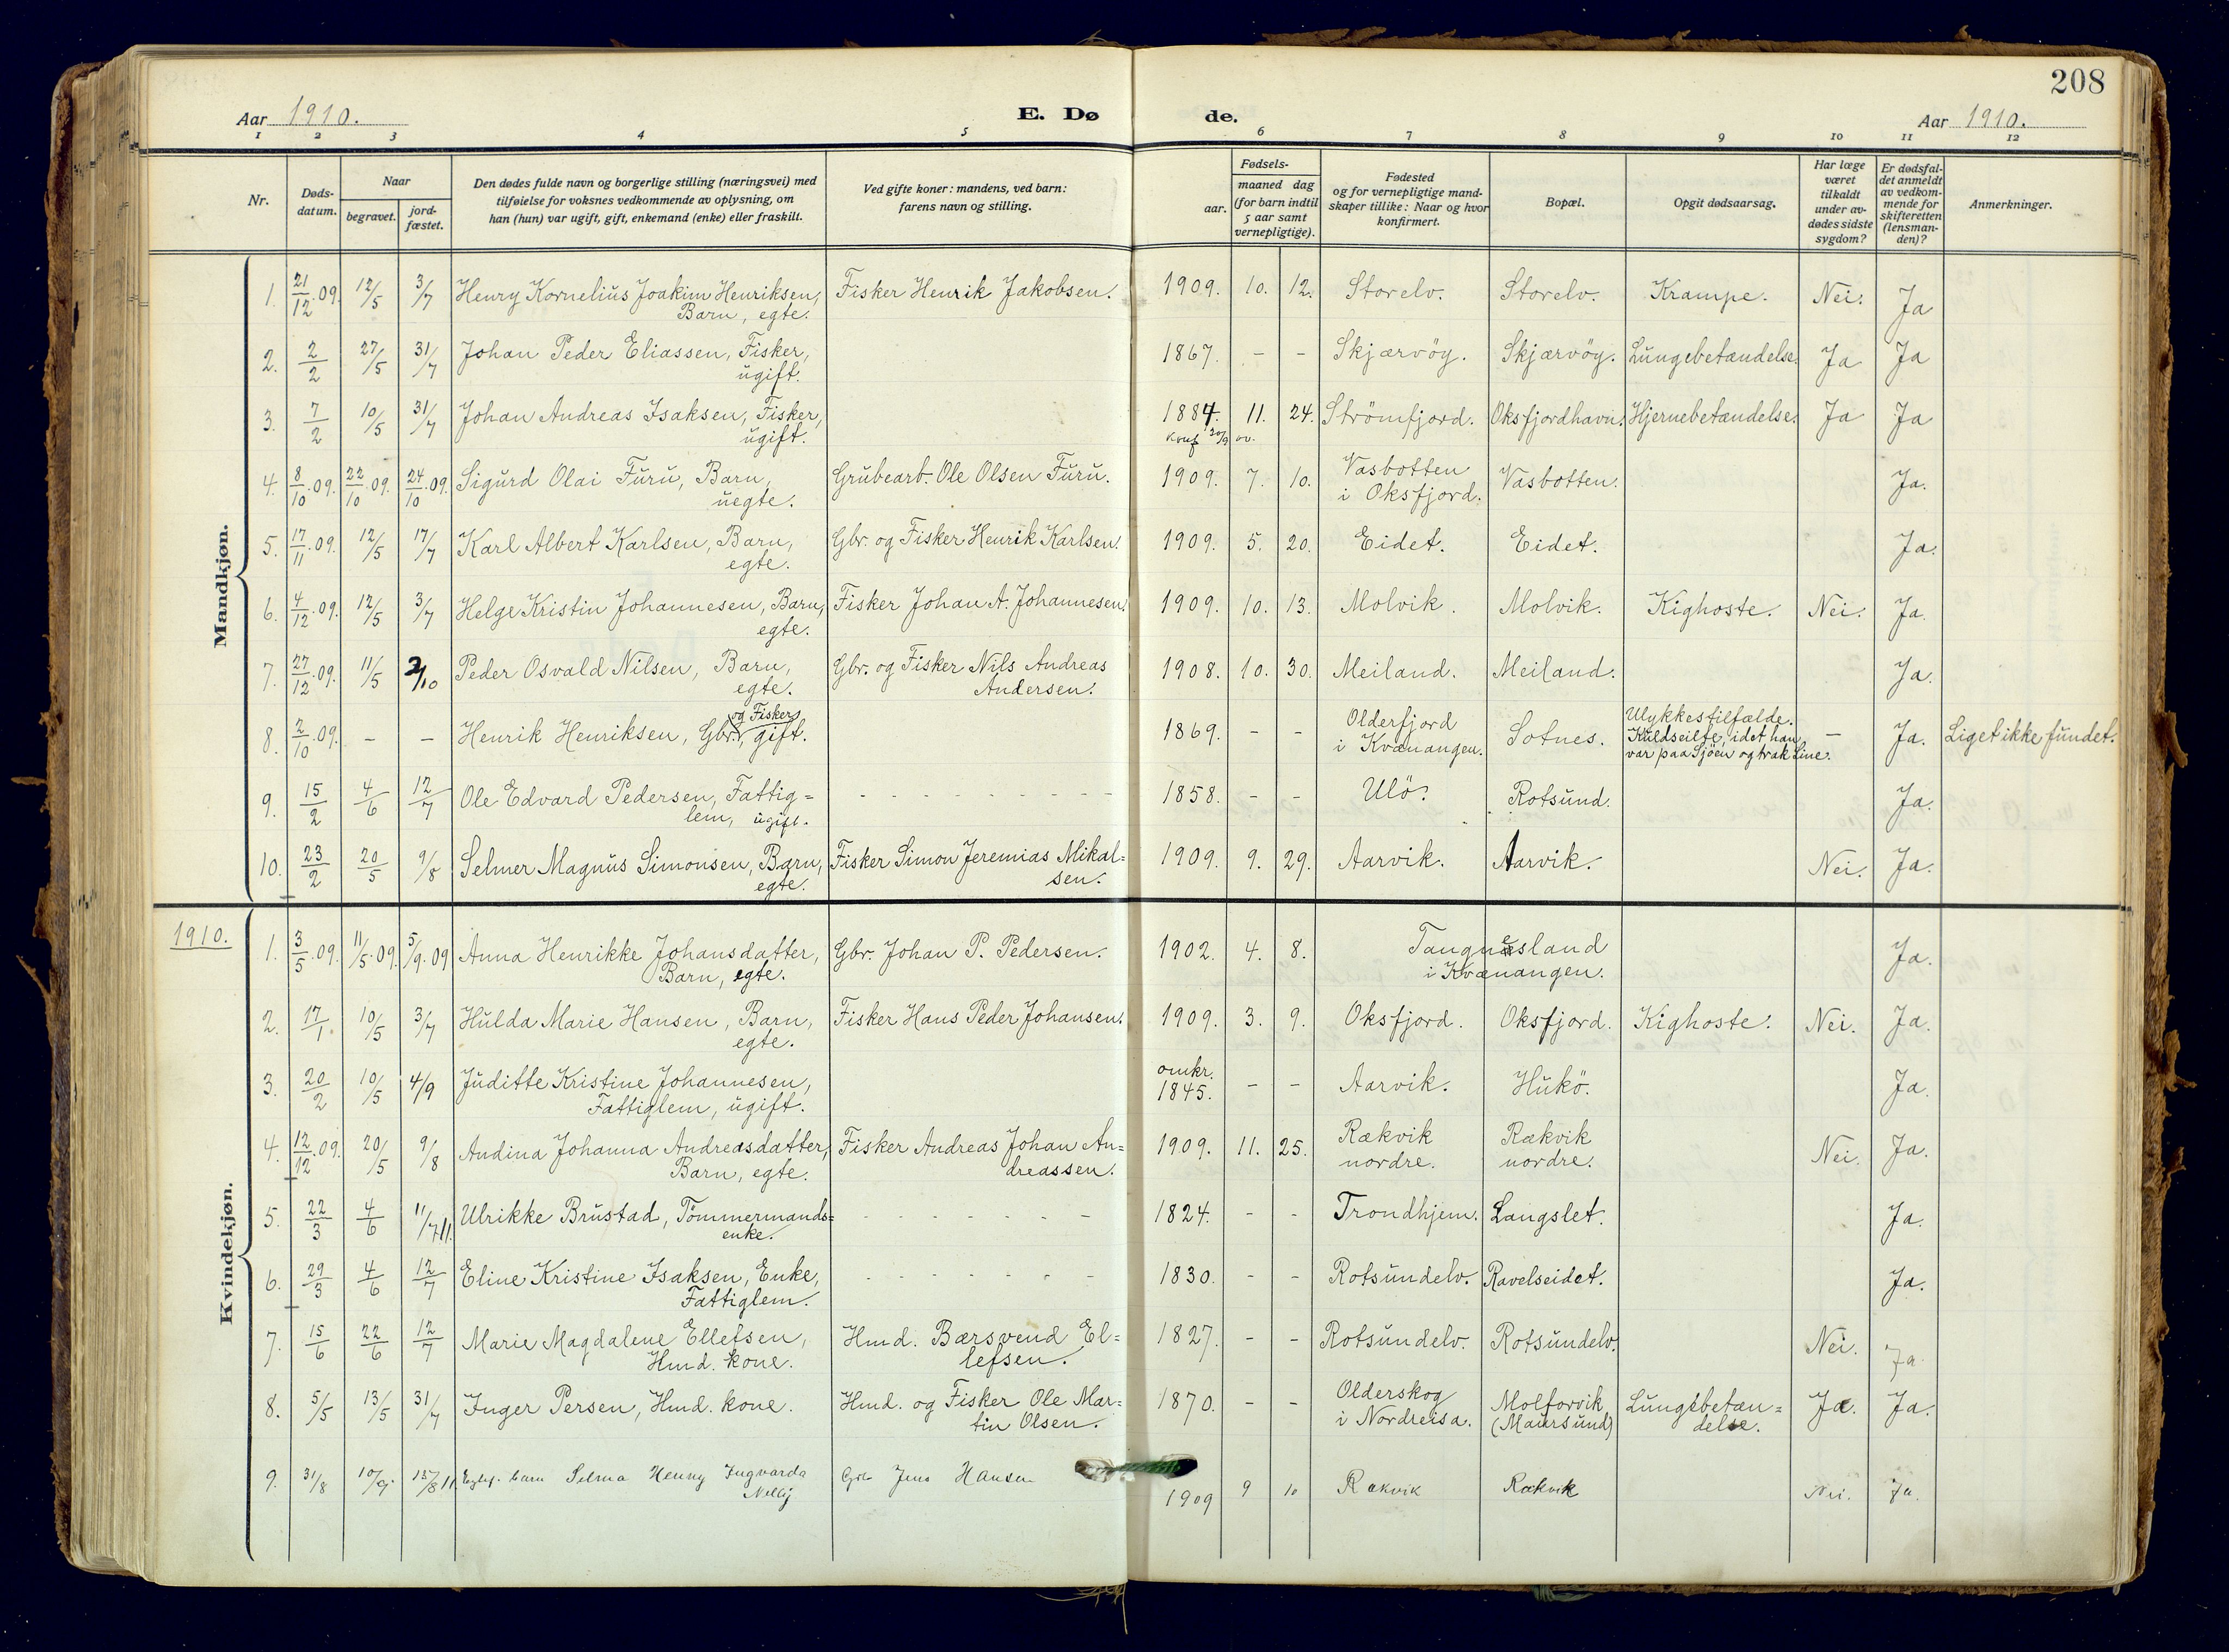 208
Aar 1910.
E. Dø
de.
Aar 1910.
1 2 3 4 5 6 7 8 9 10 11 12
Nr.
Døds-
datum.
Naar
begravet.
jord-
fæstet.
Den dødes fulde navn og borgerlige stilling (næringsvei) med
tilføielse for voksnes vedkommende av oplysning, om
han (hun) var ugift, gift, enkemand (enke) eller fraskilt.
Ved gifte koner: mandens, ved barn:
farens navn og stilling.
Fødsels-
aar.
maaned dag
(for barn indtil
5 aar samt
vernepligtige).
Fødested
og for vernepligtige mand-
skaper tillike: Naar og hvor
konfirmert.
Bopæl.
Opgit dødsaarsag.
Har læge
været
tilkaldt
under av-
dødes sidste
sygdom?
Er dødsfal-
det anmeldt
av vedkom-
mende for
skifteretten
(lensman-
den)?
Anmerkninger.
Mandkjøn.
1. 21/12.09. 12/5 3/7 Henry Kornelius Joakim Henriksen, Fisker Henrik Jakobsen. 1909. 10. 12. Storelv. Storelv. Krampe. Nei. Ja
Barn, egte.
2. 2/2 27/5 31/7 Johan Peder Eliassen, Fisker, 1867. - - Skjærvöy. Skjærvöy. Lungebetændelse. Ja Ja
ugift.
3. 7/2 10/5 31/7 Johan Andreas Isaksen, Fisker, 1884. 11. 24. Strömfjord. Oksfjordhavn. Hjernebetændelse. Ja Ja
ugift.
4. 8/10.09. 22/10.09. 24/10.09. Sigurd Olai Furu, Barn, Grubearb. Ole Olsen Furu. 1909. 7. 10. Vasbotten Vasbotten. Ja.
uegte. i Oksfjord.
5. 17/11.09. 12/5 17/7 Karl Albert Karlsen, Barn, Gbr. og Fisker Henrik Karlsen. 1909. 5. 20. Eidet. Eidet. Ja.
egte.
6. 4/12.09. 12/5 3/7 Helge Kristin Johannesen, Barn, Fisker Johan A. Johannesen. 1909. 10. 13. Molvik. Molvik. Kighoste. Nei. Ja.
egte.
7. 27/12.09. 11/5 2/10 Peder Osvald Nilsen, Barn, Gbr. og Fisker Nils Andreas 1908. 10. 30. Meiland. Meiland. Ja.
egte. Andersen.
og Fisker, Olderfjord Ulykkestilfælde.
8. 2/10.09. - - Henrik Henriksen, Gbr., gift. 1869. - - i Kvænangen. Sotnes. Kuldseilte, idet han - Ja. Liget ikke fundet.
var paa Sjöen og trak Line.
9. 15/2 4/6 12/7 Ole Edvard Pedersen, Fattig= - - - 1858. - - Ulö. Rotsund. Ja.
lem, ugift.
10. 23/2 20/5 9/8 Selmer Magnus Simonsen, Barn, Fisker Simon Jeremias Mikal= 1909. 9. 29. Aarvik. Aarvik. Nei. Ja.
egte. sen.
1910.
Kvindekjøn.
1. 3/5.09. 11/5.09. 5/9.09 Anna Henrikke Johansdatter, Gbr. Johan P. Pedersen. 1902. 4. 8. Tangnesland Ja.
Barn, egte. i Kvænangen.
2. 17/1. 10/5 3/7 Hulda Marie Hansen, Barn, Fisker Hans Peder Johansen. 1909. 3. 9. Oksfjord. Oksfjord. Kighoste. Nei. Ja.
egte.
omkr.
3. 20/2 10/5 4/9 Juditte Kristine Johannesen, 1845. - - Aarvik. Hukö. Ja.
Fattiglem, ugift.
4. 12/12.09. 20/5 9/8 Andina Johanna Andreasdatter, Fisker Andreas Johan An= 1909. 11. 25. Rækvik Rækvik Nei. Ja.
Barn, egte. dreassen. nordre. nordre.
5. 22/3 4/6 11/7 11. Ulrikke Brustad, Tömmermands= - - - 1824. - - Trondhjem. Langslet. Ja.
enke.
6. 29/3 4/6 12/7 Eline Kristine Isaksen, Enke, - - - 1830. - - Rotsundelv. Ravelseidet. Ja.
Fattiglem.
7. 15/6 22/6 12/7 Marie Magdalene Ellefsen, Hmd. Bærsvend El= 1827. - - Rotsundelv. Rotsundelv. Nei. Ja.
Hmd. kone. lefsen.
8. 5/5 13/5 31/7 Inger Persen, Hmd. kone. Hmd. og Fisker Ole Mar= 1870. - - Olderskog Molforvik Lungebetæn= Ja. Ja.
tin Olsen. i Nordreisa. (Maursund) delse.
9. 31/8 10/9 13/8 11. barn Selma Henny Ingvarda Jens Hansen 1909 9 10 Rækvik Rækvik Nei. Ja.
Nelly